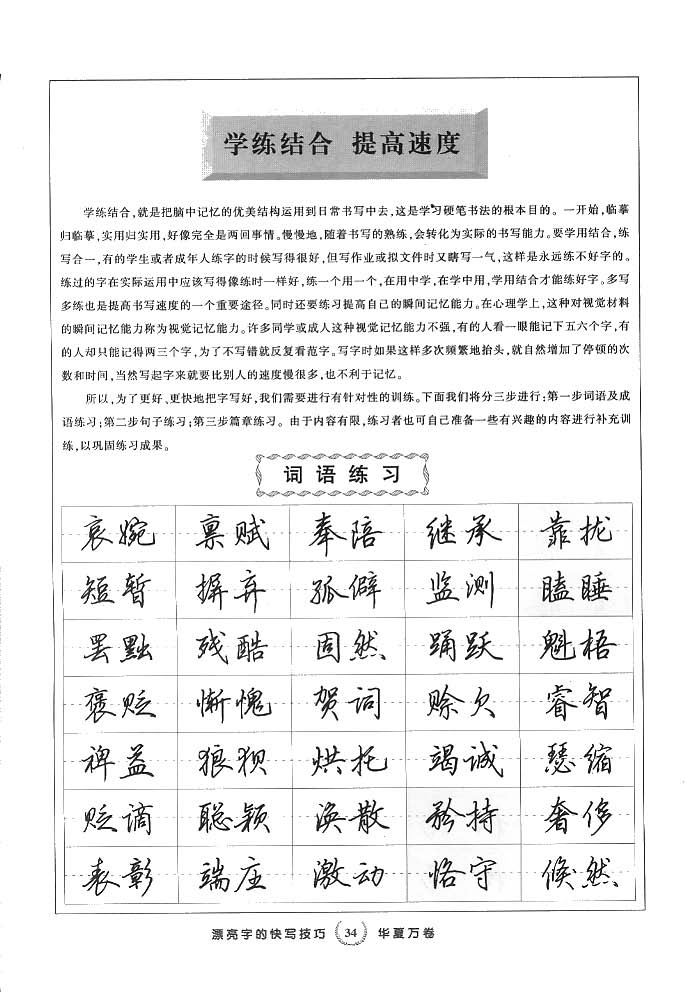 学练结合 提高速度
学练结合,就是把脑中记忆的优美结构运用到日常书写中去,这是学习硬笔书法的根本目的。一开始,临摹
归临摹,实用归实用,好像完全是两回事情。慢慢地,随着书写的熟练,会转化为实际的书写能力。要学用结合,练
写合一,有的学生或者成年人练字的时候写得很好,但写作业或拟文件时又瞎写一气,这样是永远练不好字的。
练过的字在实际运用中应该写得像练时一样好,练一个用一个,在用中学,在学中用,学用结合才能练好字。多写
多练也是提高书写速度的一个重要途径。同时还要练习提高自己的瞬间记忆能力。在心理学上,这种对视觉材料
的瞬间记忆能力称为视觉记忆能力。许多同学或成人这种视觉记忆能力不强,有的人看一眼能记下五六个字,有
的人却只能记得两三个字,为了不写错就反复看范字。写字时如果这样多次频繁地抬头,就自然增加了停顿的次
数和时间,当然写起字来就要比别人的速度慢很多,也不利于记忆。
所以,为了更好、更快地把字写好,我们需要进行有针对性的训练。下面我们将分三步进行:第一步词语及成
语练习;第二步句子练习;第三步篇章练习。由于内容有限,练习者也可自己准备一些有兴趣的内容进行补充训
练,以巩固练习成果。
词语练习
哀婉 禀赋 奉陪 继承 靠拢
短暂 摒弃 孤僻 监测 瞌睡
罢黜 残酷 固然 踊跃 魁梧
褒贬 惭愧 贺词 赊欠 睿智
裨益 狼狈 烘托 竭诚 瑟缩
贬谪 聪颖 涣散 矜持 奢侈
表彰 端庄 激动 恪守 倏然
漂亮字的快写技巧 34 华夏万卷